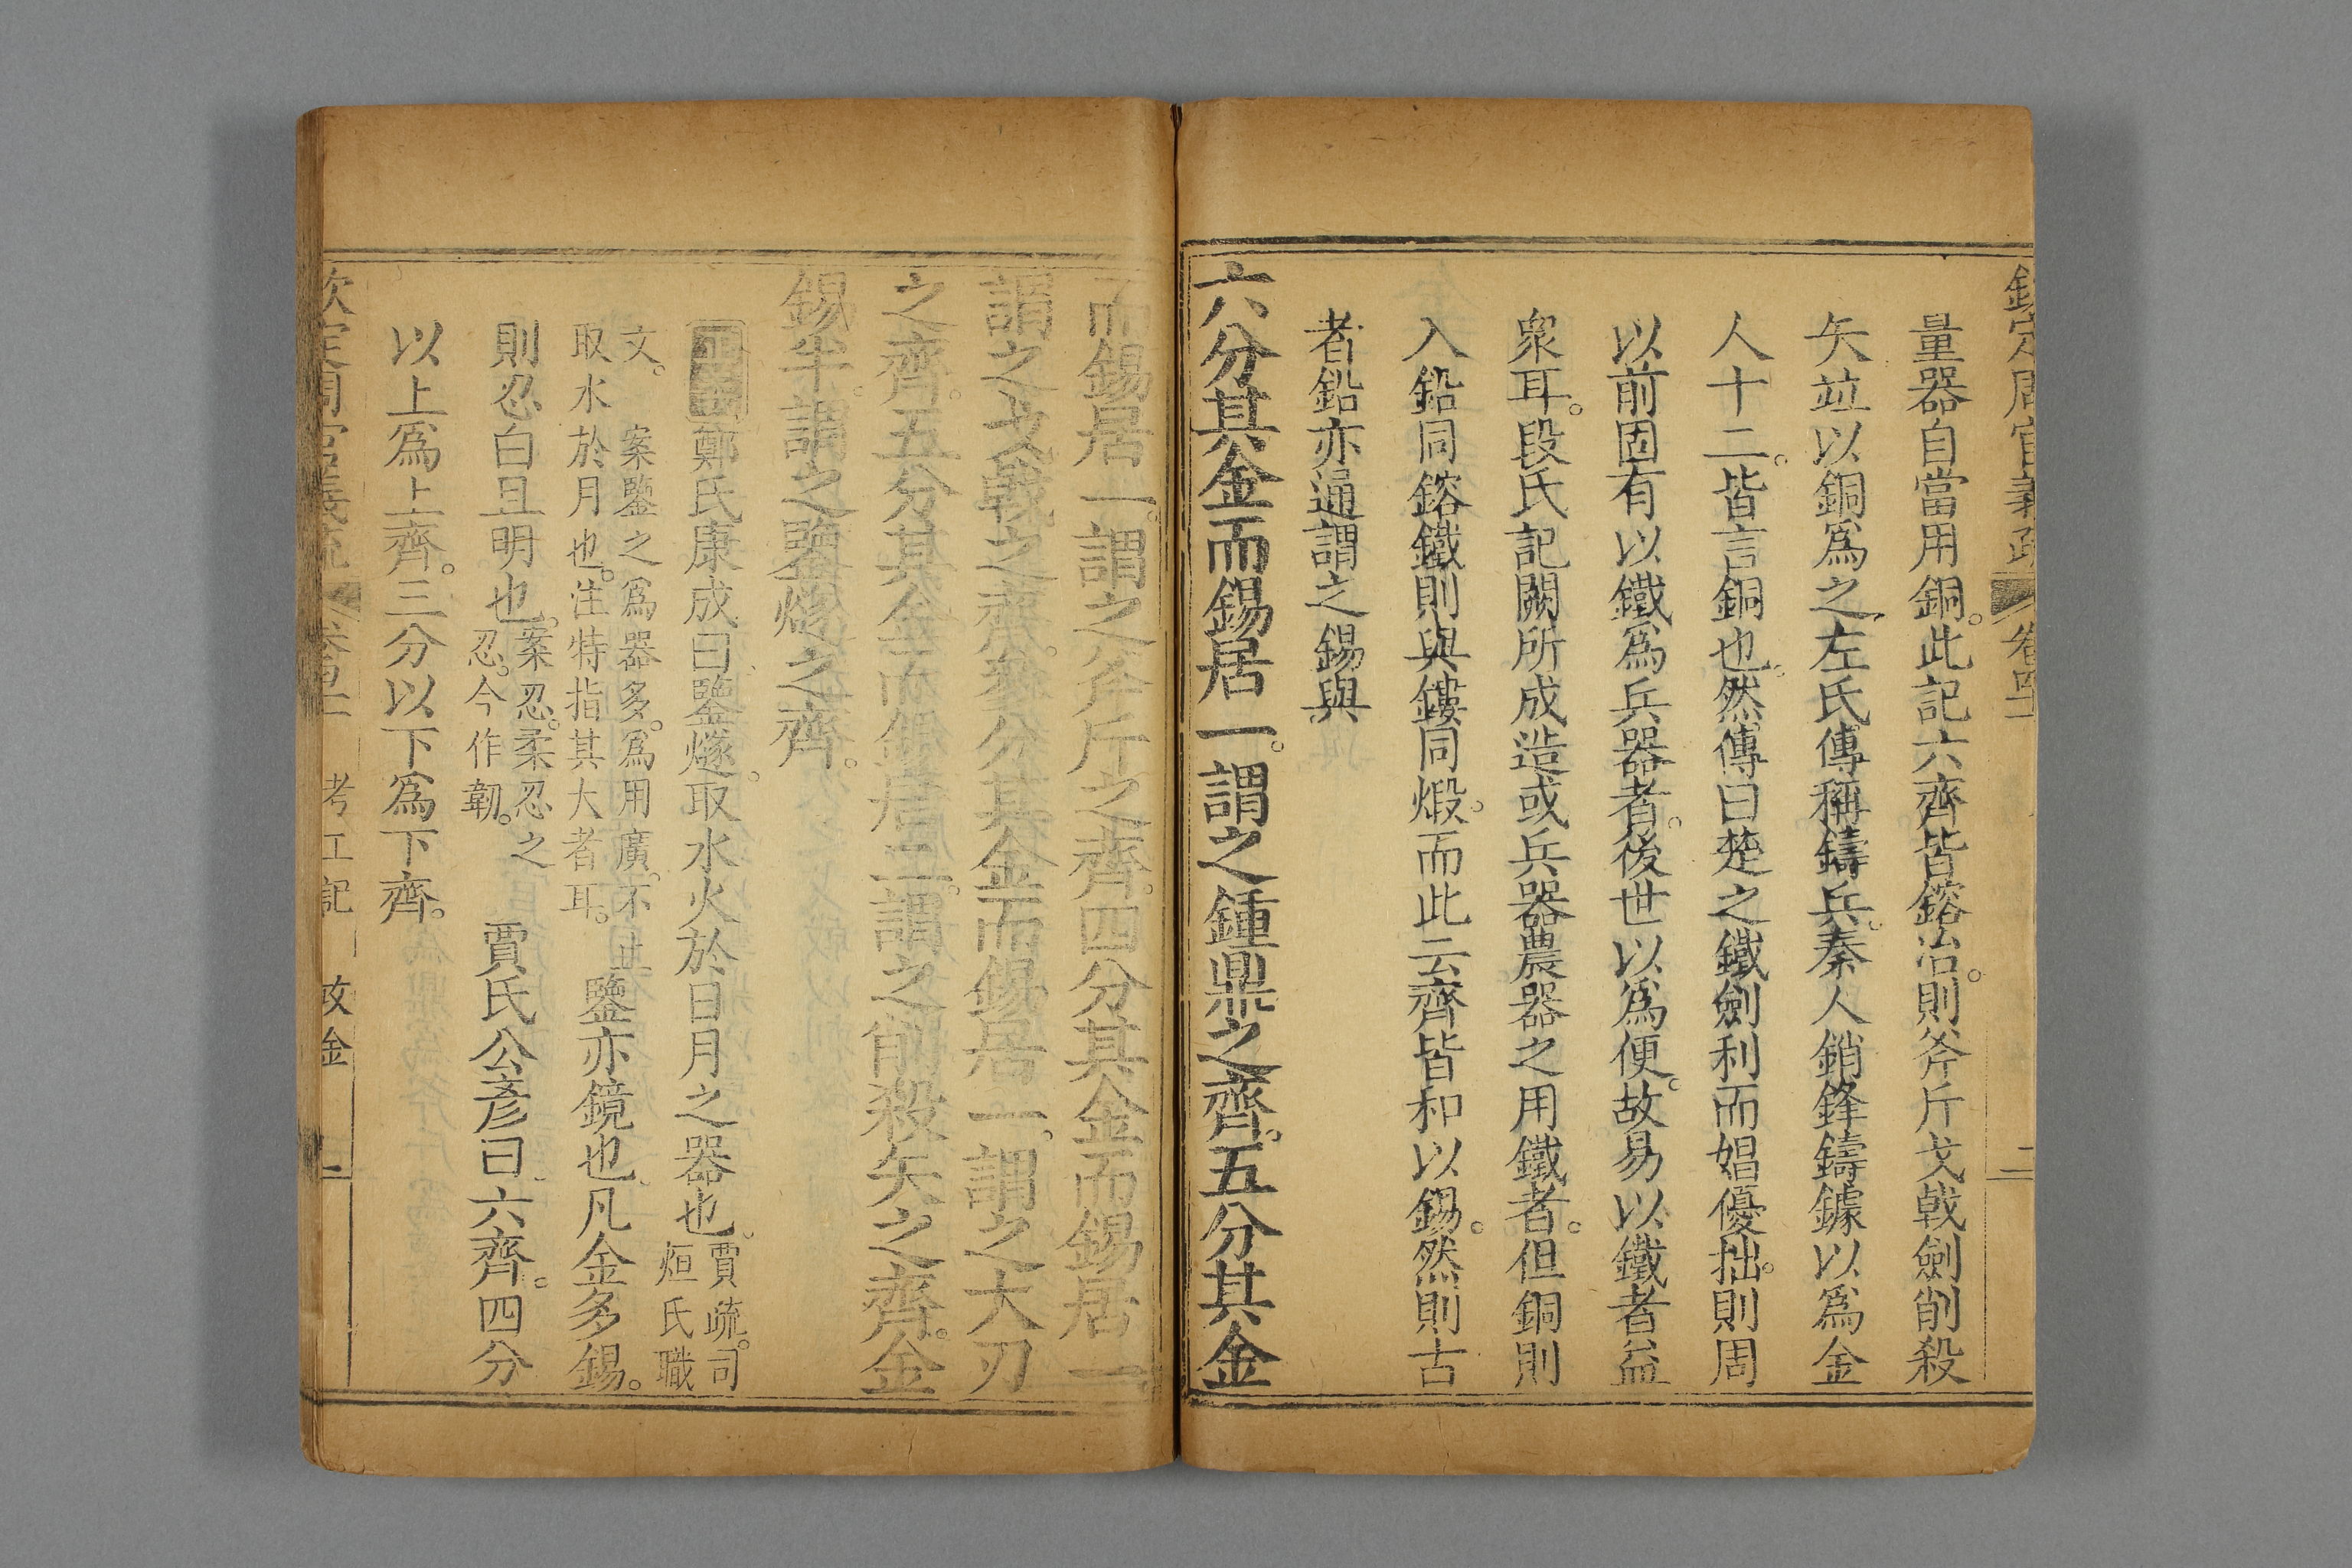 欽定周官義疏 卷四十二 二
量器自當用銅。此記六齊皆鎔冶。則斧斤戈戟劍削殺
矢竝以銅爲之。左氏傳稱鑄兵。秦人銷鋒鑄鐻以爲金
人十二。皆言銅也。然傳曰楚之鐵劍利而娼優拙。則周
以前固有以鐵爲兵器者。後世以爲便。故易以鐵者益
衆耳。段氏記闕所成造或兵器農器之用鐵者。但銅則
入鉛同鎔鐵則與鏤同煅。而此云齊皆和以錫。然則古
者鉛亦通謂之錫與
六分其金而錫居一。謂之鍾鼎之齊。五分其金
而錫居一。謂之斧斤之齊。四分其金而錫居一
謂之戈戟之齊。參分其金而錫居一。謂之大刃
之齊。五分其金而錫居二。謂之削殺矢之齊。金
錫半。謂之鑒燧之齊。
鄭氏康成曰鑒燧。取水火於日月之器也。賈疏。司烜氏職
文。案鑒之爲器多。爲用廣。不
取水於月也。注特指其大者耳。鑒亦鏡也。凡金多錫。
則忍白且明也。案忍。柔忍之忍。今作韌。賈氏公彥曰六齊。四分
以上爲上齊。三分以下爲下齊。
欽定周官義疏 卷四十二 考工記 攻金 二